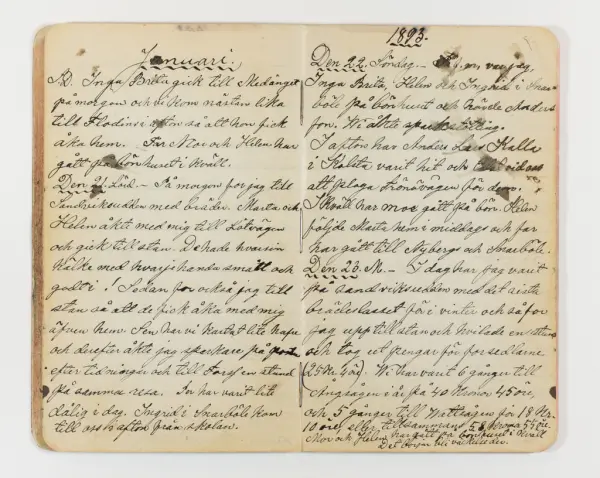 Januari.
N.B. Inga Brita gick till Medånget
på morgon och vi kom nästan lika
till Flodins i afton så att hon fick
åka hem. Far Moe och Helen har
gått på bönhuset i kväll.
Den 21. Lörd. – På morgon for jag till
Sandviksudden med bräder. Marta och
Helen åkte med mig till Lötvägen
och gick till stan. De hade hvarsin
kälke med hvarjehanda smått och
godt i! Sedan for också jag till
stan så att de fick åka med mig
äfven hem. Sen har vi kastat lite hafre
och derefter åkte jag sparkare på posten
efter tidningar och till Forssen en stund
på samma resa. Far har varit lite
dålig i dag. Ingrid i Snarbäle kom
till oss i afton från skolan.
1893.
Den 22. Söndag. – F.m. var jag,
Inga Brita, Helen och Ingrid i Snar-
böle på bönhuset och hörde Anders-
son. Vi åkte sparkstötting.
I afton har Anders Lars Kalla
i Kulita varit hit och
att ploga Frönövägen för dem.
I kväll har moe gått på bön. Helen
följde Marta hem i middags och far
har gått till Nybergs och Snarböle.
Den 23. M. – I dag har jag varit
på sandviksudden med det sista
brädlasset för i vinter och så for
jag upp till stan och hvilade en stund
och tog ut pengar för forsedlarne
(25 Kr. 4 ör). Vi har varit 6 gånger till
Ångsågen i år på 40 Kronor 45 öre,
och 5 gånger till Wattsågen för 18 Kr.
10 öre, eller tillsammans 58 kronor 55 öre.
Mor och Helen har gått på bönhuset i kväll
Det börjar bli väckelse der.